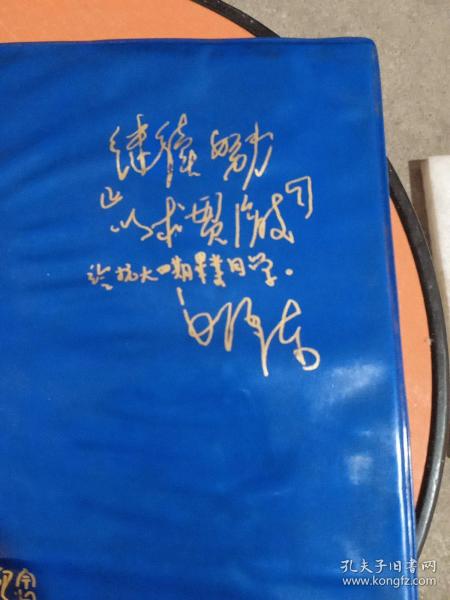 继续努力
以求贯彻
给抗大一期毕业同学。
毛泽东
孔夫子旧书网
www.kongfz.com